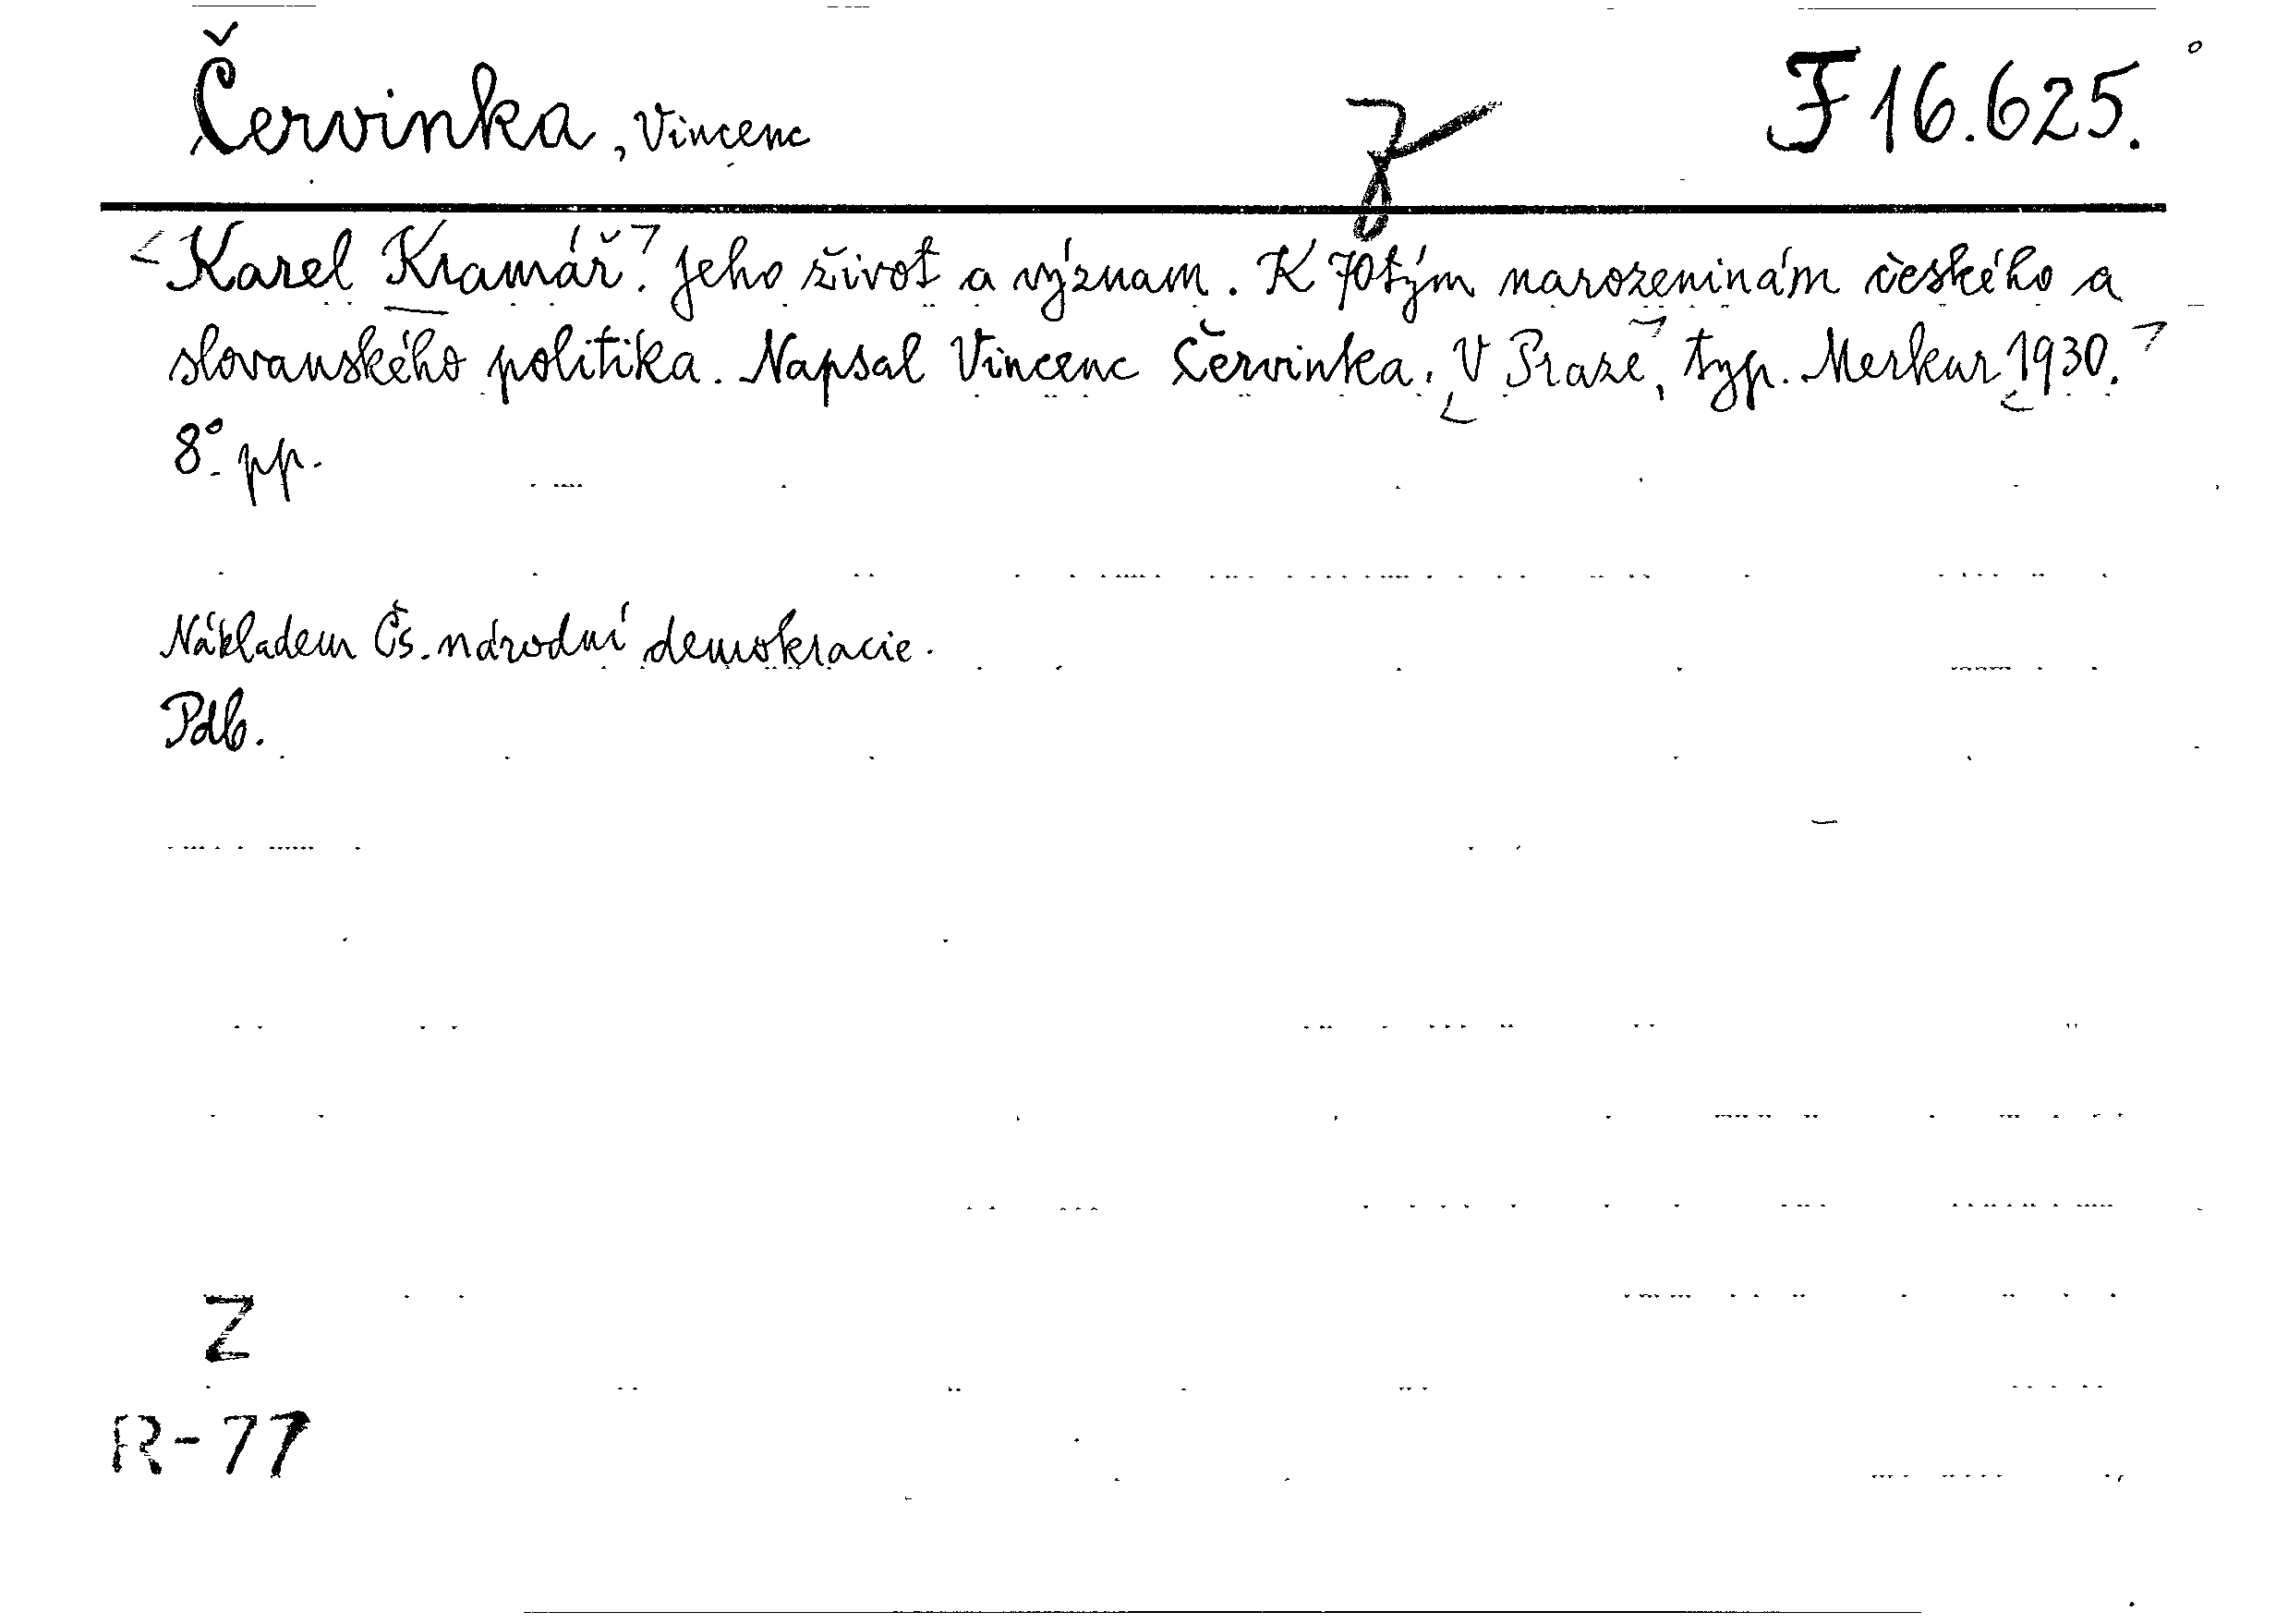 Červinka, Vincenc
F 16.625.
Karel Kramář. Jeho život a význam. K 70tým narozeninám českého a
slovanského politika. Napsal Vincenc Červinka. V Praze, typ. Merkur 1930.
8°. pp.
Nákladem Čs. národní demokracie.
Pdb.
Z
R-77